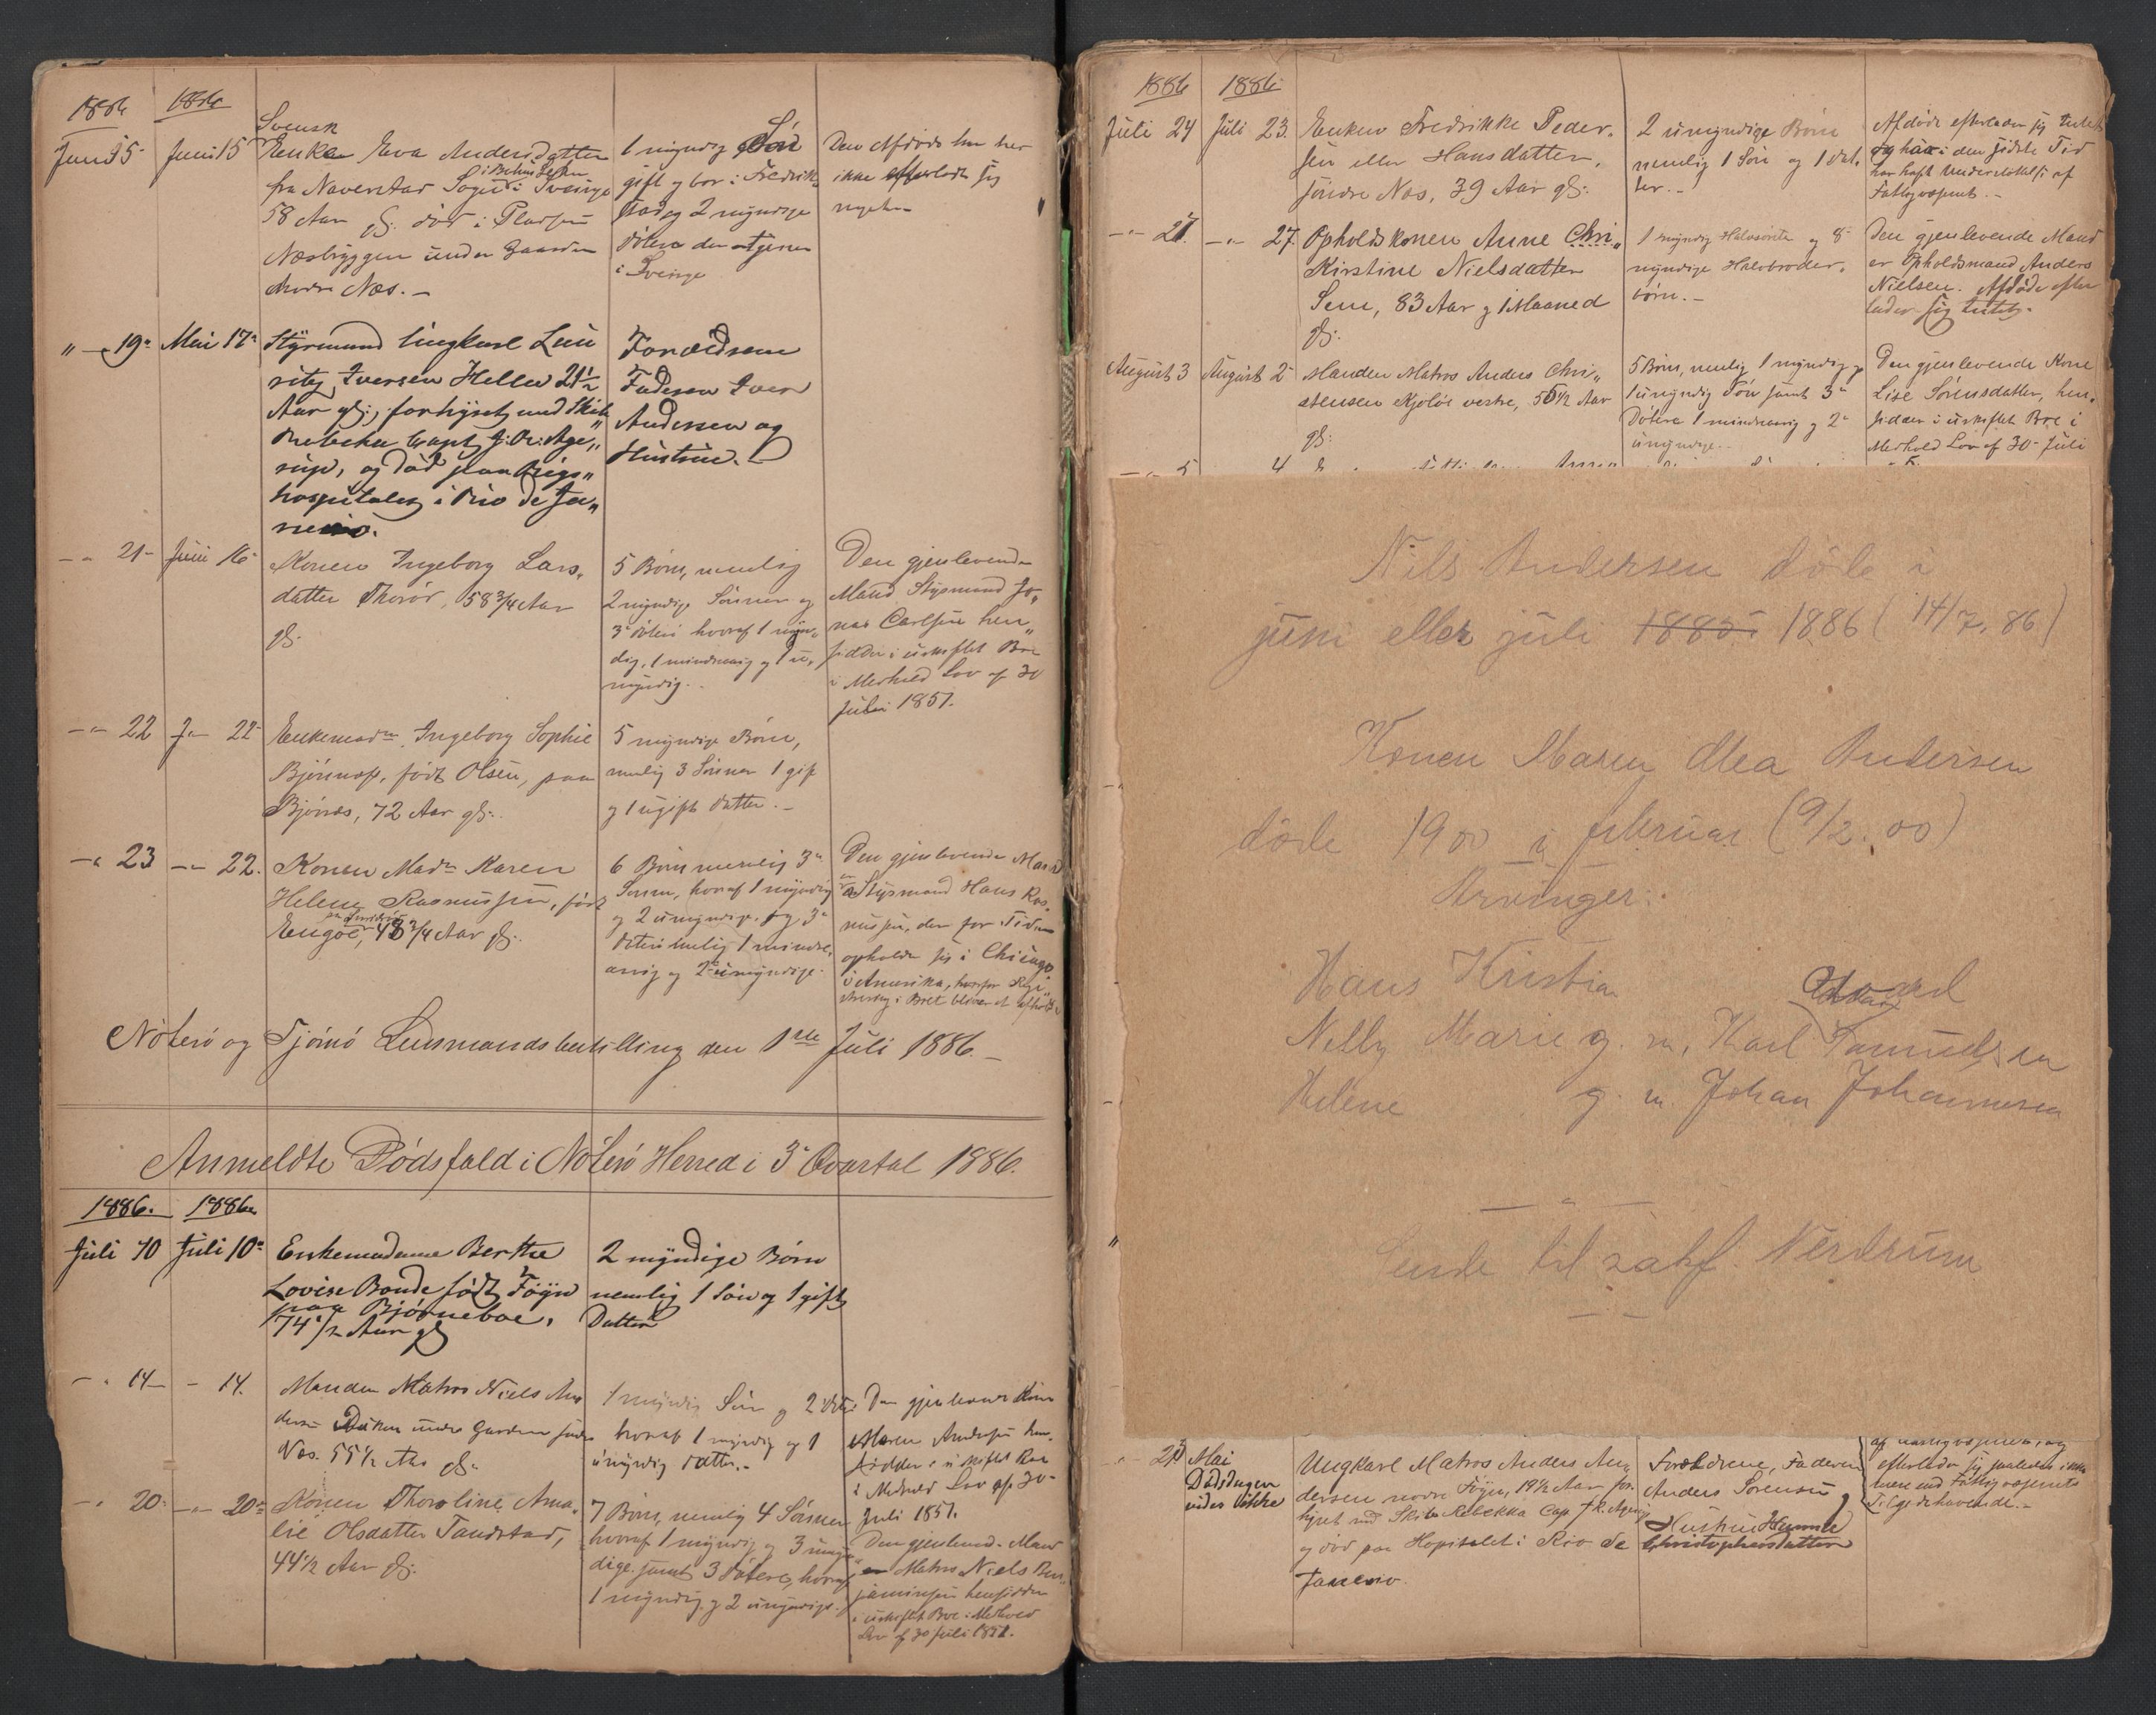 1886 1886
Juni 15 Juni 15 Svensk
Enke Eva Andersdatter
fra Naverstad Sogn i Bohus Lehn i Sverige
58 Aar gl. död i Pladsen
Næsbryggen under Gaarden
Næs.
1 myndig Sön
gift og bor i Fredrik-
stad og 2 myndige
dötre der tjener
i Sverige
Den Afdöde har her
ikke efterladt sig
noget
" — 19 Mai 17 Styrmand Ungkarl Lau
ritz Iversen Helle 21½
Aar gl., forhyret med Skib
Rebekka Capt J. Chr. Age„
rup, og död paa Rigs„
hospitalet i Rio de Ja„
neiro.
Forældrene
Faderen Iver
Andersen og
Hustrue.
— " 21 Juni 16 Konen Ingeborg Lars-
datter Thorör, 58 3/4 Aar
gl.
5 Börn, nemlig
2 myndige Sönner og
3 dötre hvoraf 1 myn„
dig, 1 mindreaarig og 1 u„
myndig.
Den gjenlevende
Mand Styrmand Jo„
nas Carlsen hen„
sidder i uskiftet Bo
i Medhold Lov af 30
Juli 1851.
— " 22 J— 22 Enkemadm Ingeborg Sophie
Björnass, födt Olsen, paa
Björnæs, 72 Aar gl.
5 myndige Börn,
nemlig 3 Sönner 1 gift
og 1 ugift datter.
— " 23 — " 22. Konen Madm Karen
Helene Rasmussen, födt
Engöe, 48 3/4 Aar gl.
6 Börn nemlig 3
Sönner, hvoraf 1 myndig
og 2 umyndige, og 3
dötre nemlig 1 mindre„
aarig og 2 umyndige.
Den gjenlevende Mand
er Styrmand Hans Ras„
mussen, der for Tiden
opholder sig i Chicago
i Amerika, hvorfor Regi„
strering i Boet bliver at afholde
Nöterö og Tjömö Lensmandsbestilling den 1ste Juli 1886.
Anmeldte Dödsfald i Nöterö Herred i 3 Qvartal 1886.
1886. 1886
Juli 10 Juli 10 Enkemadame Berthe
Lovise Bonde födt Föyn
paa Björneboe,
74 1/2 Aar gl
2 myndige Börn
nemlig 1 Sön og 1 gift
Datter
— " 14 — 14. Manden Matros Niels An
dersen under Gaarden söndre
Næs. 55 1/2 Aar gl.
1 myndig Sön og 2 dötre
hvoraf 1 myndig og 1
umyndig datter.
Den gjenlevende Kone
Maren Andersen hen„
sidder i uskiftet Boe
i Medhold Lov af 30
Juli 1851.
— " 20 — " 20 Konen Thoroline Ama„
lie Olsdatter Tandstad,
44 1/2 Aar gl.
7 Börn, nemlig 4 Sönner
hvoraf 1 myndig og 3 umyn„
dige samt 3 dötre, hvoraf
1 myndig og 2 umyndige.
Den gjenlevende Mand
er Matros Niels Ben„
jaminsen hensidder
i uskiftet Boe i Medhold
Lov af 30 Juli 1851.
1886 1886
Juli 24 Juli 23. Enken Fredrikke Peder-
sen eller Hansdatter,
söndre Næs, 39 Aar gl.
2 umyndige Börn
nemlig 1 Sön og 1 dat„
ter.
Afdöde efterlader sig Intet
og har i den sidste Tid
har haft Understöttelse af
Fattigvæsenet.
— " 27. — " 27. Opholdskonen Anne Chri„
Kirstine Nielsdatter
Sem, 83 Aar og 1 Maaned
gl.
1 myndig Halvsöster og 8
myndige Halvbroder„
börn.
Den gjenlevende Mand
er Opholdsmand Anders
Nielsen. Afdöde efter
lader sig Intet.
August 3 August 2 Manden Matros Anders Chri„
stensen Kjölöe vestre, 56 1/2 Aar
gl.
5 Börn, nemlig 1 myndig og
1 umyndig Sön samt 3
Dötre 1 mindreaarig og 2
umyndige.
Den gjenlevende Kone
Lise Sörensdatter, hen„
sidder i uskiftet Boe i
Medhold Lov af 30 Juli
— " 5 4
Nils Andersen döde i
juni eller juli 1885 1886 (14/7. 86)
Konen Maren Mea Andersen
döde 1900 i februar (9/2. 00)
Arvinger:
Hans Kristian
Nelly Marie g. m. Karl Samuelsen
Helene g. m. Johan Johannesen
Sende til sakf. Nerdrum
— " 23 Mai
Dödsdagen
vides ikke
Ungkarl Matros Anders An„
dersen nordre Föyn, 19 1/2 Aar for„
hyret med Skibet Rebekka Cap. J. R. Agerup
og död paa Hospitalet i Rio de
Janeiro.
Forældrene, Faderen
Anders Sörensen
Hustru Hanna
Christophersdatter
af Fattigvæsenet, og
efterlader sig saaledes ikke
mere end Fattigvæsenets
Tilgodehavende.